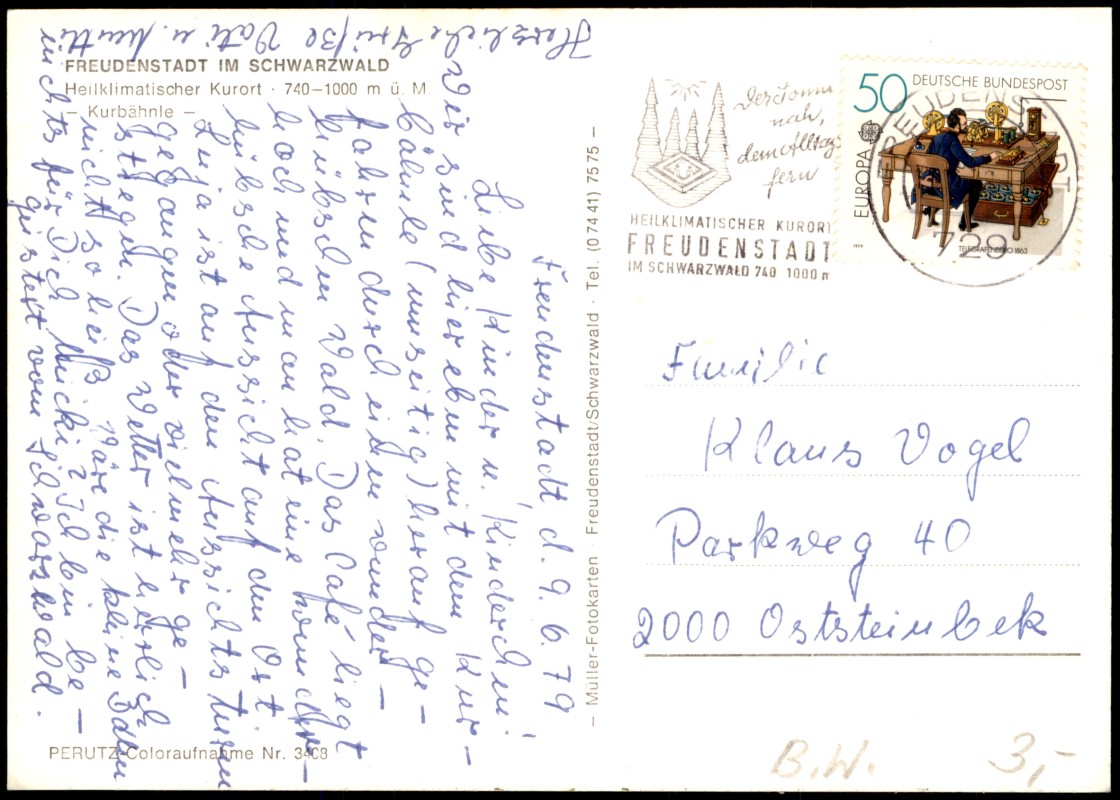 FREUDENSTADT IM SCHWARZWALD
Heilklimatischer Kurort · 740–1000 m ü. M.
– Kurbähnle –
Freudenstadt, d. 9. 6. 79
Liebe Kinder u. Kinderchen!
Wir sind hier eben mit dem Kur-
bähnle (umseitig) herauf ge-
fahren durch einen wunder-
hübschen Wald. Das Café liegt
hoch und man hat eine wunder-
hübsche Aussicht auf den Ort.
Luja ist auf den Aussichtsturm
gegangen oder vielmehr ge-
stiegen. Das Wetter ist herrlich
nicht so heiß. Wäre die kleine Bahn
nichts für Dich Micki? Ich bin be-
geistert vom Schwarzwald.
Herzliche Grüße Vati u. Mutti
PERUTZ-Coloraufnahme Nr. 3408
– Müller-Fotokarten Freudenstadt/Schwarzwald · Tel. (07441) 7575 –
Der Sonne
nah,
dem Alltag
fern
HEILKLIMATISCHER KURORT
FREUDENSTADT
IM SCHWARZWALD 740 1000 m
50 DEUTSCHE BUNDESPOST
EUROPA
1979
TELEGRAFENBÜRO 1863
FREUDENSTADT
729
Familie
Klaus Vogel
Parkweg 40
2000 Oststeinbek
B.W. 3,-